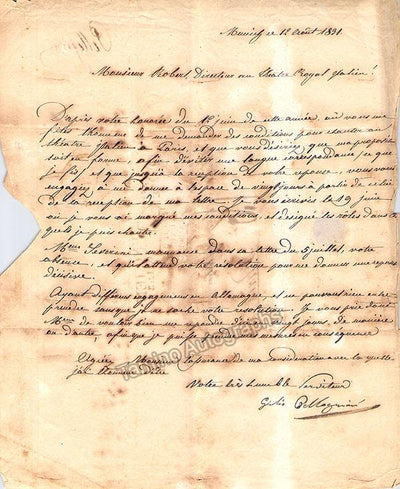 Munich ce 12 Août 1831
Monsieur Robert Directeur au théatre Royal Italien!
D'après votre honorée du 1 juin de cette année, où vous me
fites l'honneur de me demander des conditions pour chanter au
théatre Italien à Paris, et que vous désiriez que ma proposition
soit en forme, afin d'éviter une longue correspondance, ce que
je fis, et que jusqu'à la reception de votre reponse, vous vous
engagiez à me donner l'espace de vingt jours à partir de celui
de la reception de ma lettre. Je vous écrivis le 19 juin
où je vous ai marqué mes conditions, et designé les rôles dans
quels je puis chanter.
Mr Severini m'annonce dans sa lettre du 5 juillet, votre
absence, et qu'il attend votre résolution pour me donner une reponse
décisive.
Ayant differens engagemens en Allemagne et ne pouvant rien entre-
prendre jusque je ne sache votre resolution. Je vous prie donc
de vouloir bien me repondre dans vingt jours, de manière
ou d'autre, afin que je puisse prendre mes mesures en consequence
Agréez Monsieur l'assurance de ma consideration avec la quelle
j'ai l'honneur d'être
Votre très humble Serviteur
Giulio Pellegrini
Tamino Autographs